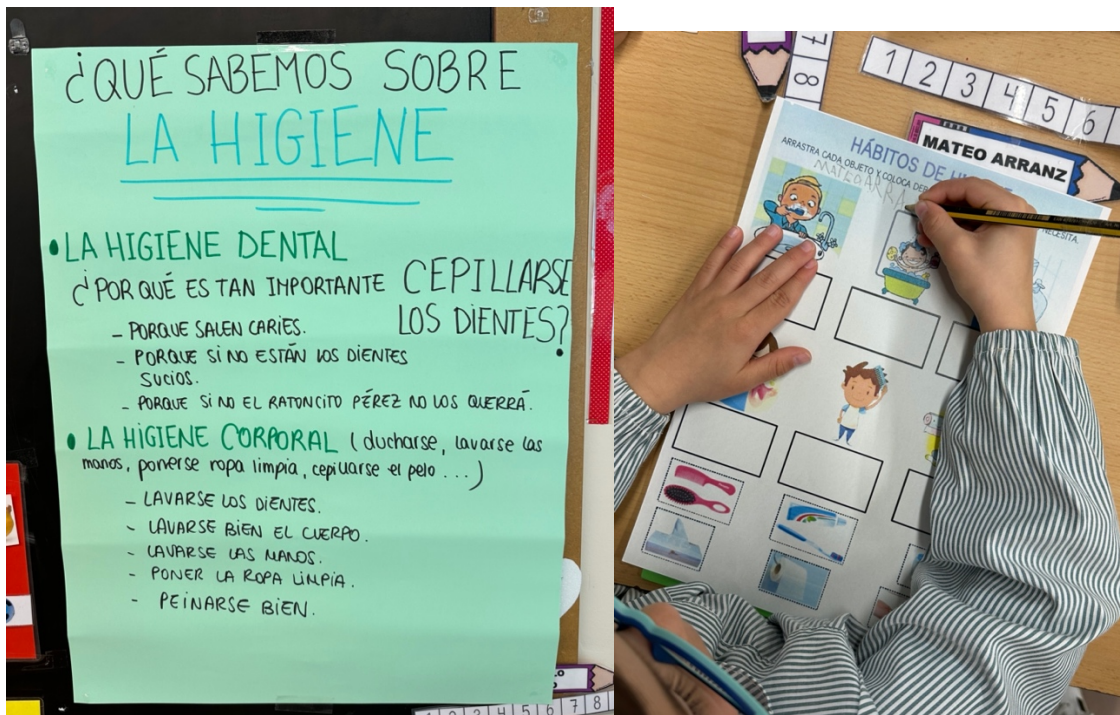 ¿QUÉ SABEMOS SOBRE
LA HIGIENE
• LA HIGIENE DENTAL
¿POR QUÉ ES TAN IMPORTANTE CEPILLARSE
LOS DIENTES?
- PORQUE SALEN CARIES.
- PORQUE SI NO ESTÁN LOS DIENTES
SUCIOS.
- PORQUE SI NO EL RATONCITO PÉREZ NO LOS QUERRÁ.
• LA HIGIENE CORPORAL (ducharse, lavarse las
manos, ponerse ropa limpia, cepillarse el pelo...)
- LAVARSE LOS DIENTES.
- LAVARSE BIEN EL CUERPO.
- LAVARSE LAS MANOS.
- PONER LA ROPA LIMPIA.
- PEINARSE BIEN.
1 2 3 4 5 6 7 8
7 8
1 2 3 4 5 6
MATEO ARRANZ
HÁBITOS DE
ARRASTRA CADA OBJETO Y COLOCA
NECESITA.
MATEO ARRA